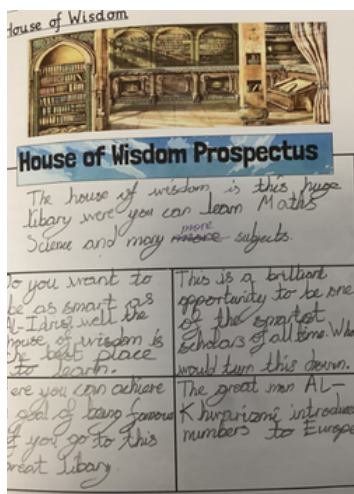 House of Wisdom
House of Wisdom Prospectus
The house of wisdom is this huge
libary were you can learn Maths
Science and many more subjects.
o you want to
be as smart as
Al-Idrisi well the
house of wisdom is
the best place
to learn.
This is a brilliant
opportunity to be one
of the smartest
scholars of all time. Who
would turn this down.
ere you can achieve
goal of being famous
if you go to this
great libary
The great man AL-
Khwarizmi introduce
numbers to Europe